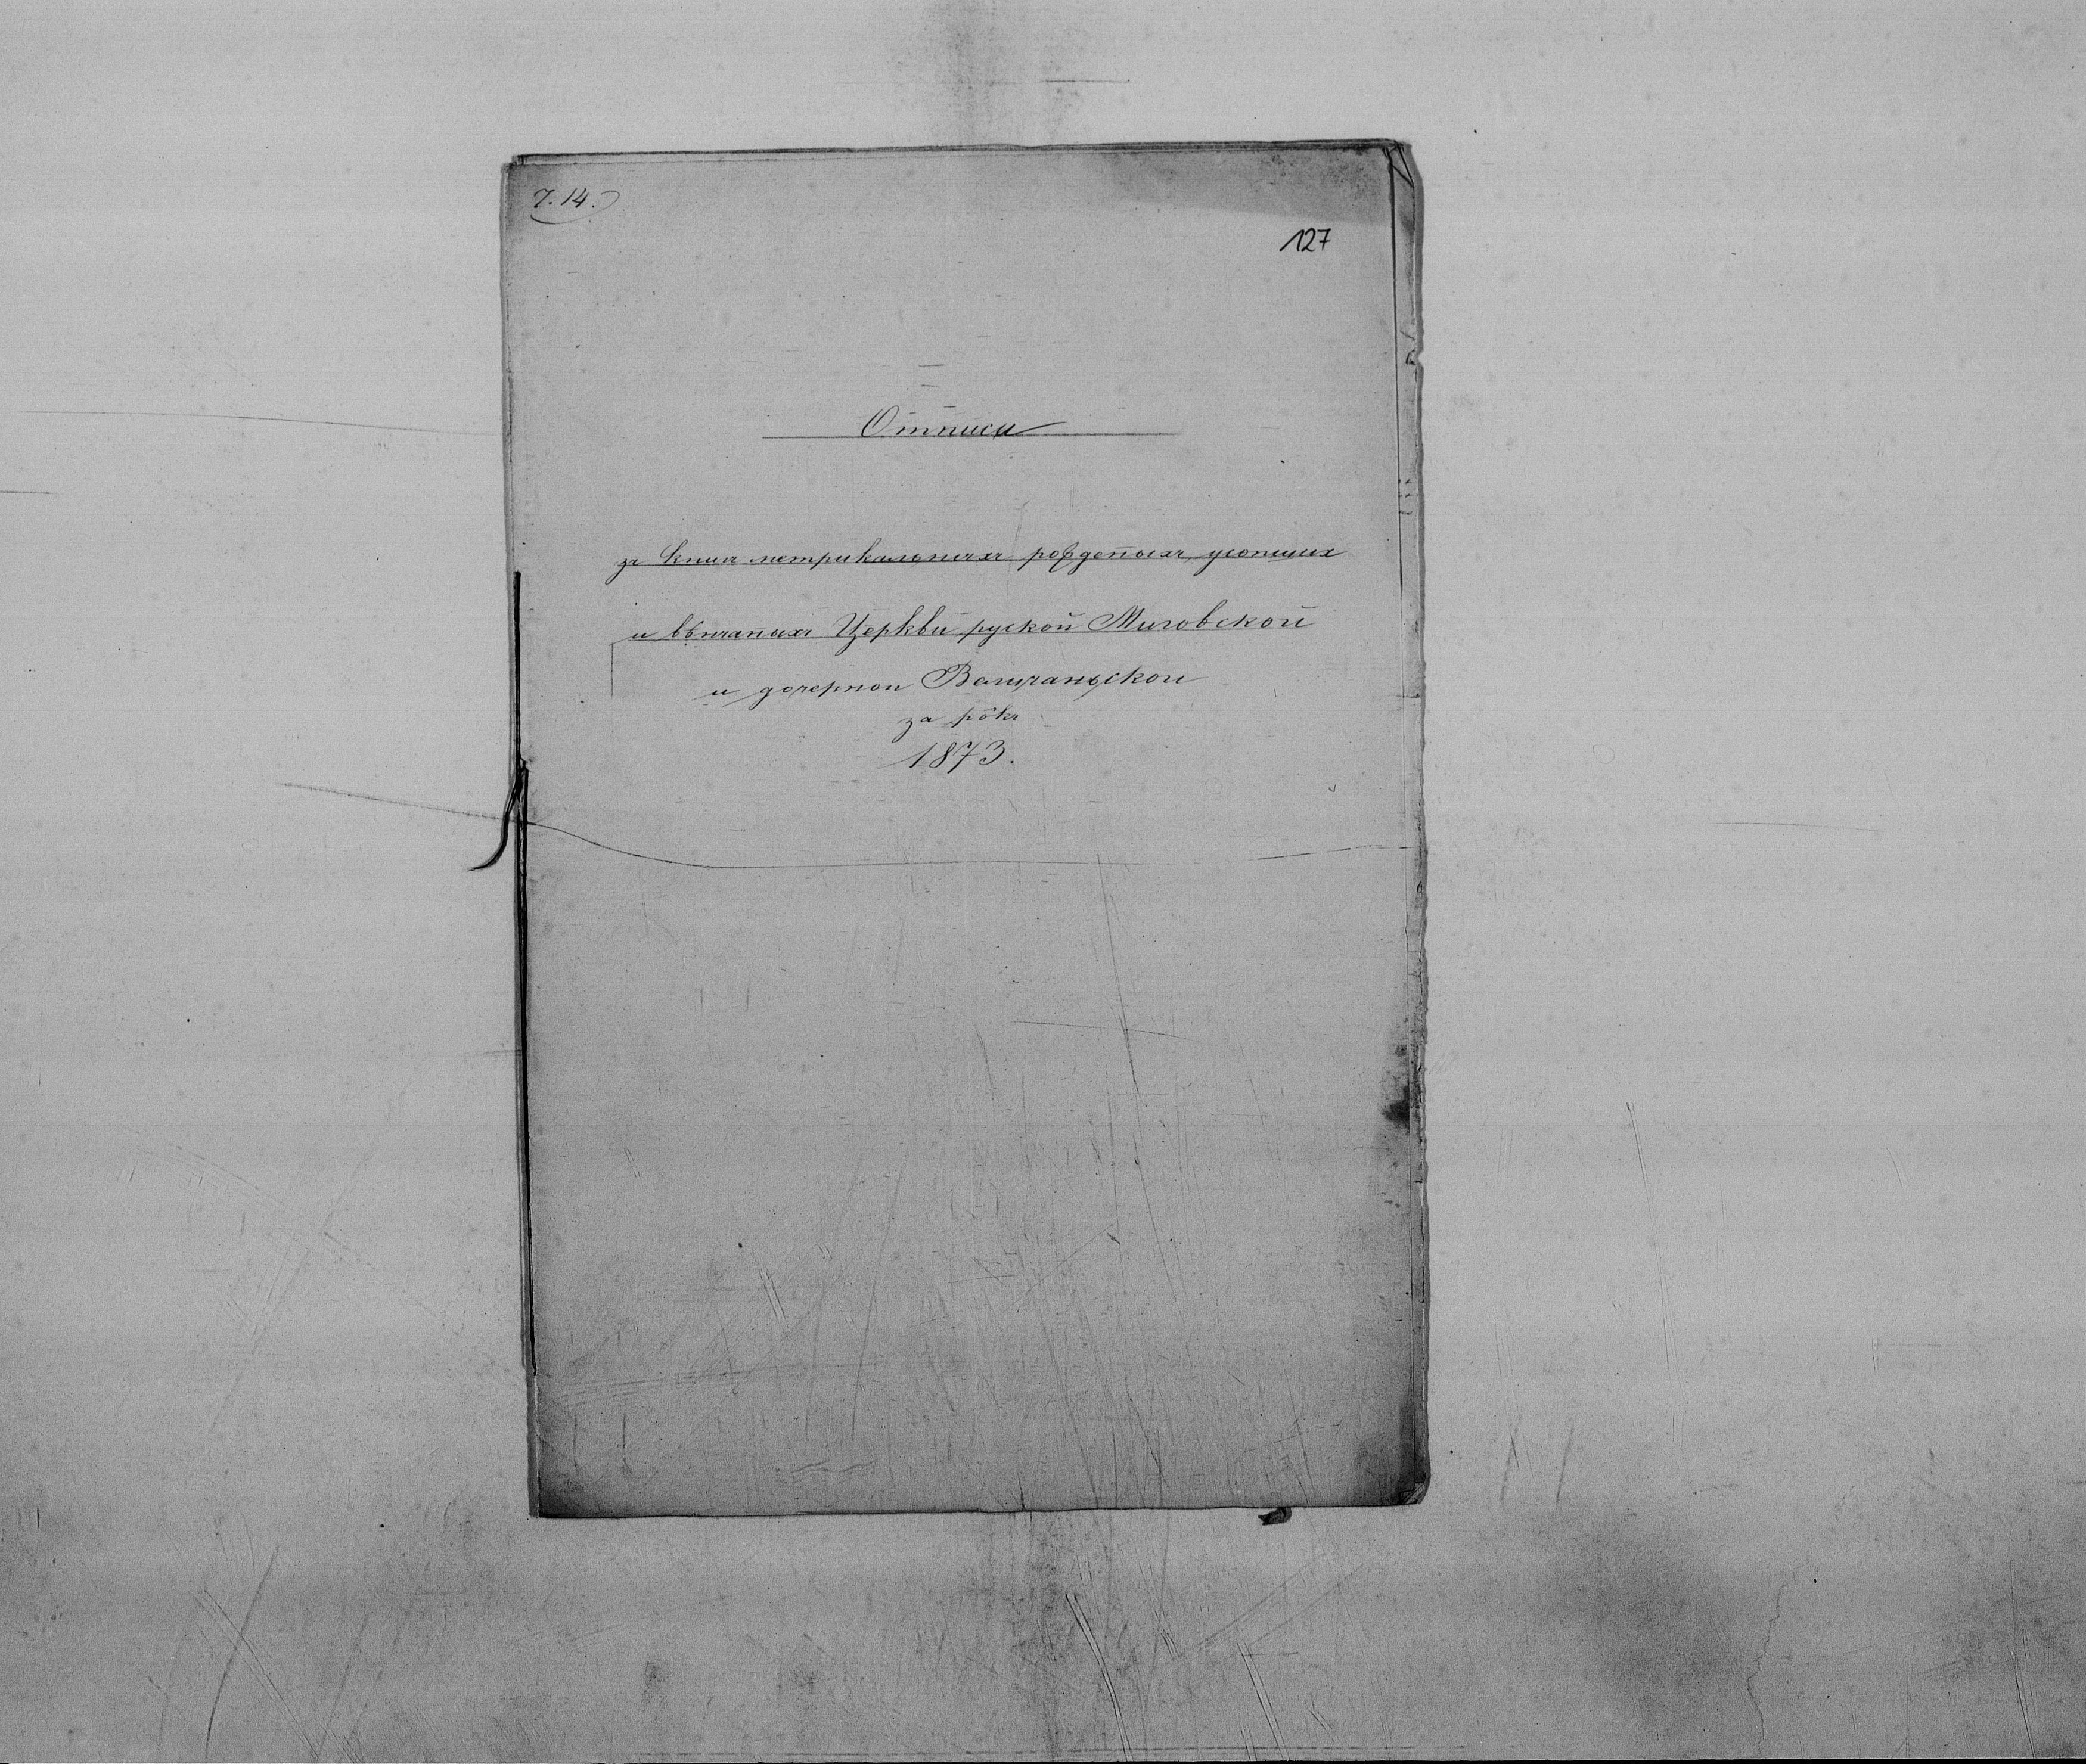 7. 14.
127
Отписи
зъ книгъ метрикальныхъ рожденыхъ, усопших
и вѣнчаныхъ Церкви руской Миговской
и дочерной Ванчанской
за рôкъ
1873.